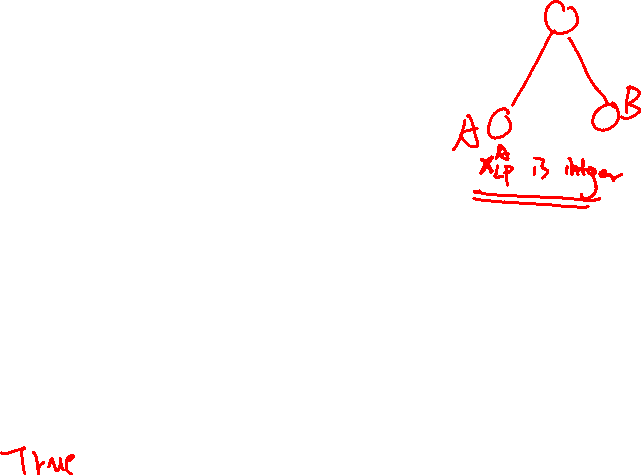 A
B
x_LP^A is integer
True